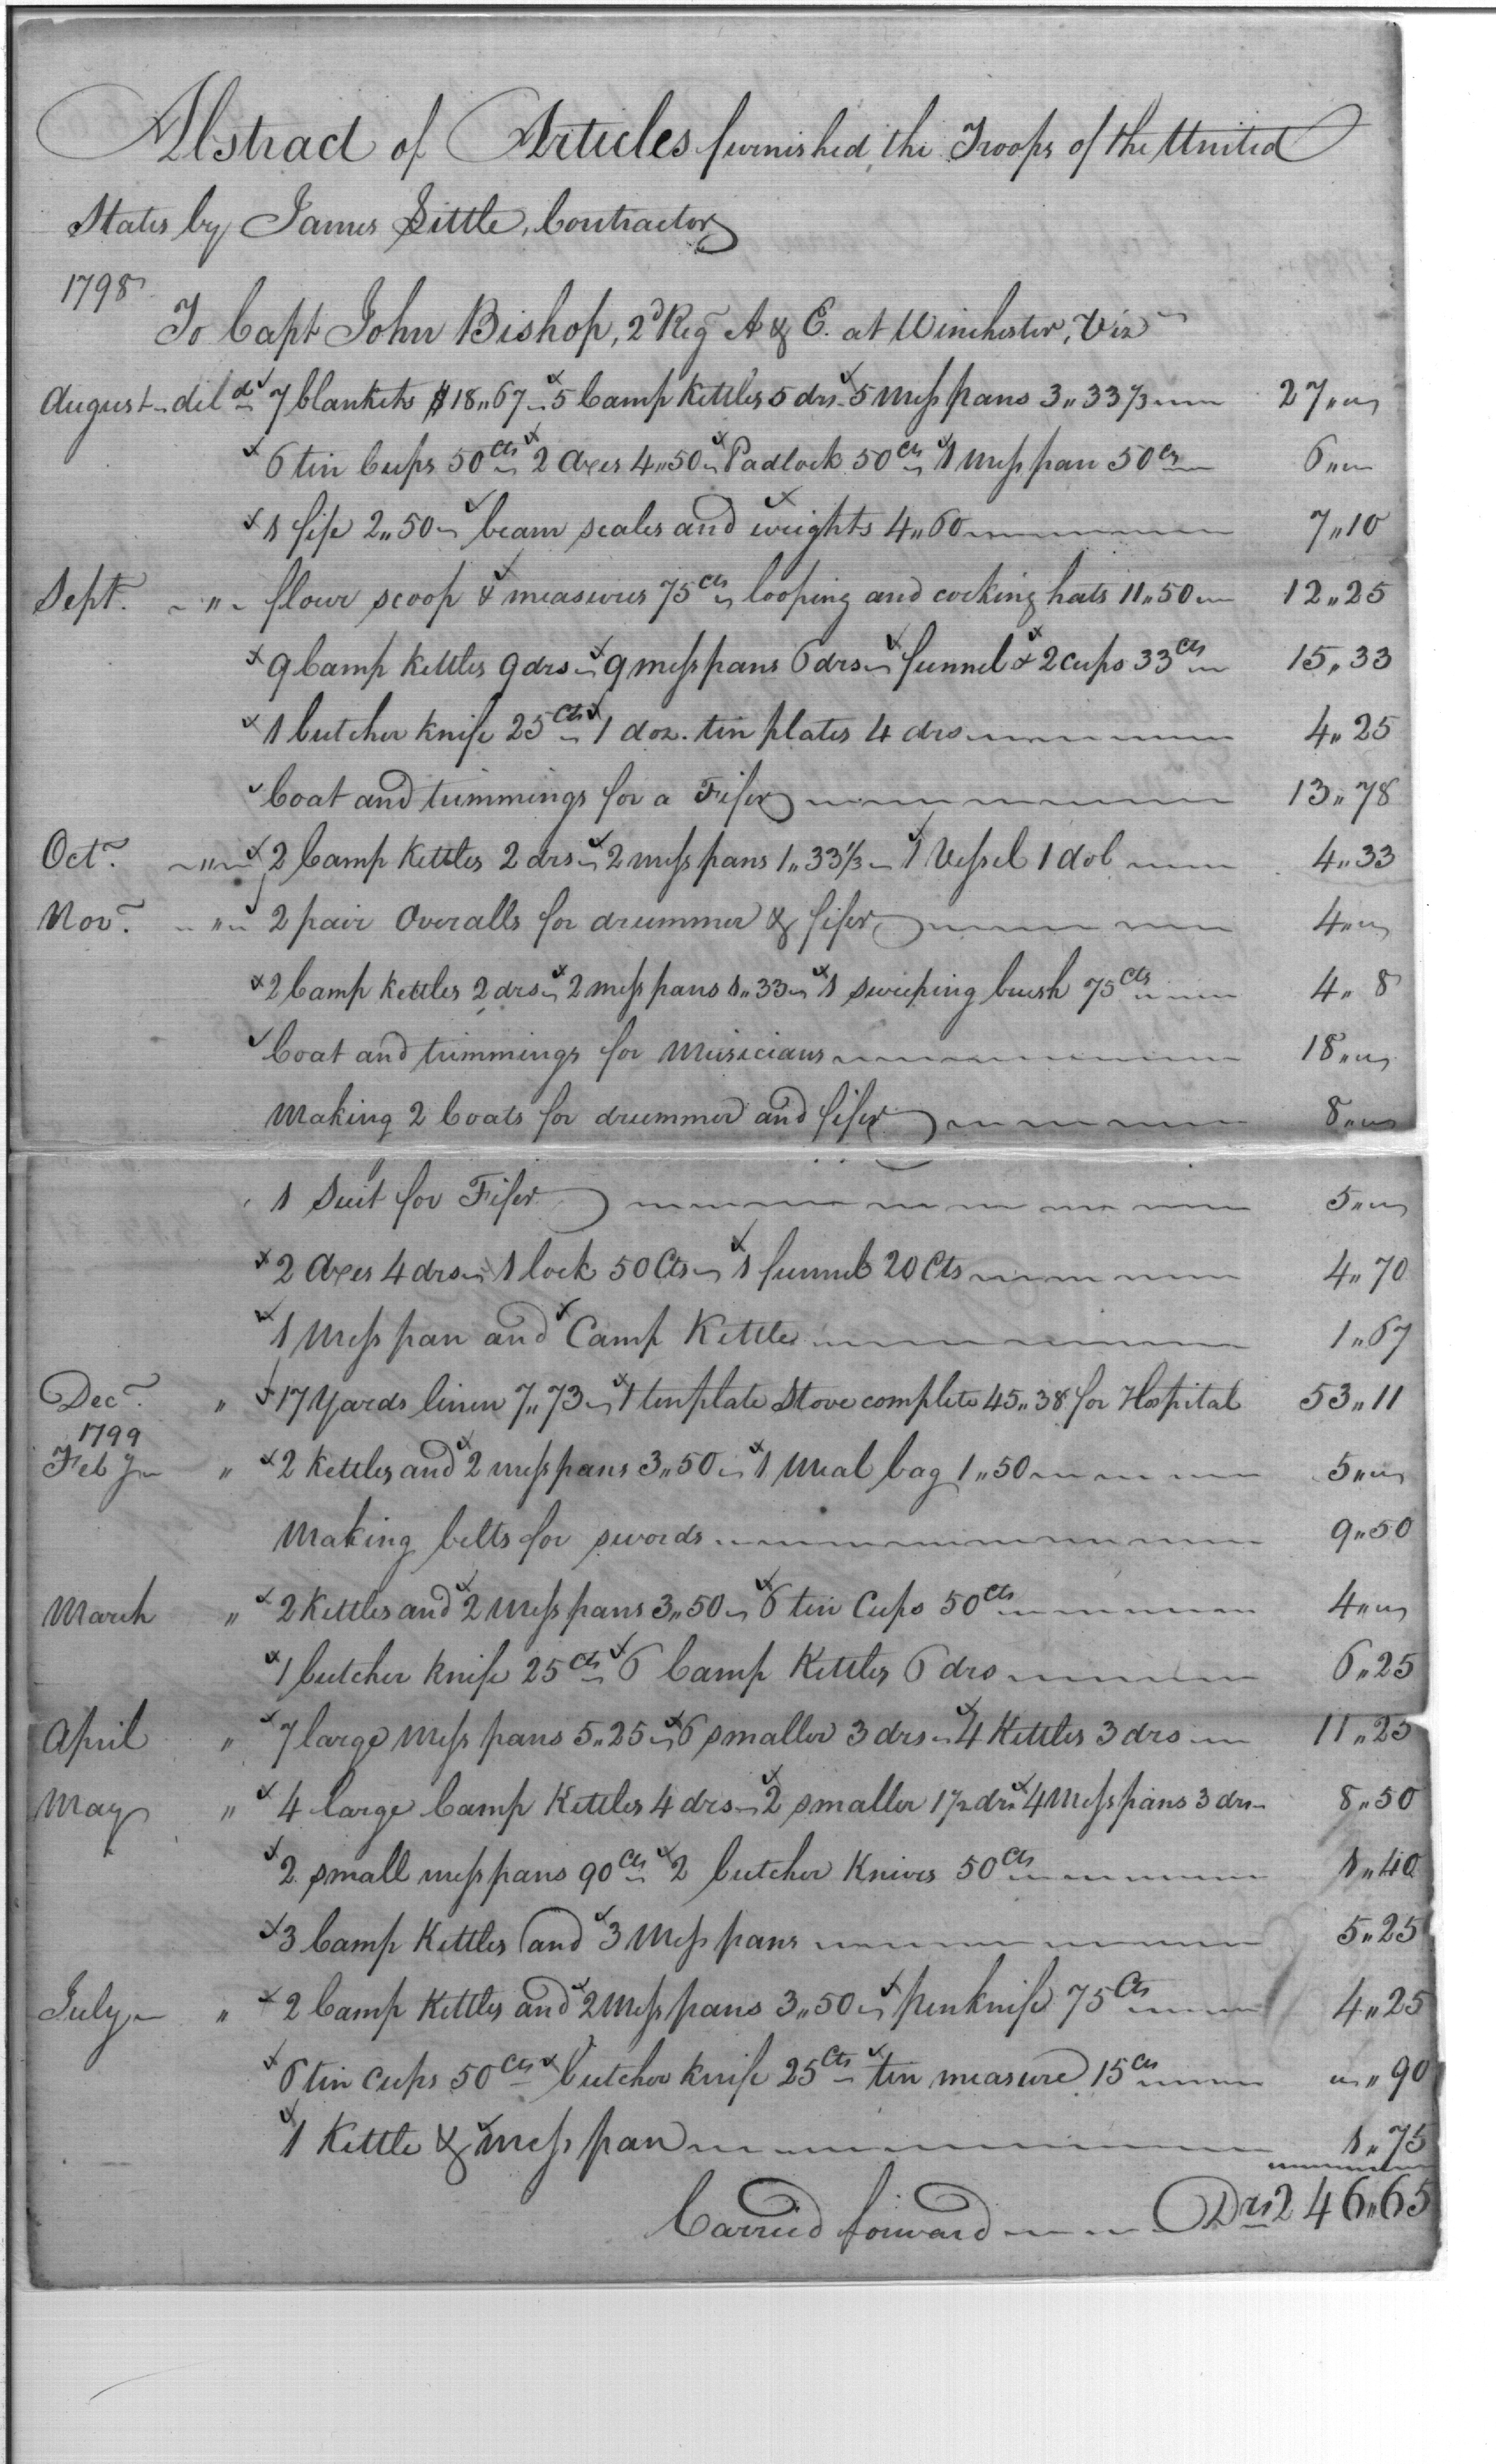 Abstract of Articles furnished the Troops of the United
States by James Little, Contractor
1798
To Capt John Bishop, 2d Reg A & E. at Winchester, Viz
August - deld 7 blankets $18"67 5 Camp Kettles 5 drs 5 Mess pans 3"33 1/3 27"
6 tin Cups 50Cts 2 Axes 4"50 Padlock 50Cts 1 Mess pan 50Cts 6"
1 fife 2"50 beam scales and weights 4"60 7"10
Sept. " flour scoop & measures 75Cts looping and cocking hats 11"50 12"25
9 Camp Kettles 9 drs 9 mess pans 6 drs funnel & 2 cups 33Cts 15"33
1 butcher knife 25Cts 1 doz. tin plates 4 drs 4"25
Coat and trimmings for a Fifer 13"78
Oct. " 2 Camp Kettles 2 drs 2 mess pans 1"33 1/3 1 Vessel 1 dol 4"33
Nov. " 2 pair Overalls for drummer & fifer 4"
2 Camp Kettles 2 drs 2 mess pans 1"33 1 sweeping brush 75Cts 4"8
Coat and trimmings for Musicians 18"
Making 2 Coats for drummer and fifer 8"
1 Suit for Fifer 5"
2 Axes 4 drs 1 lock 50 Cts 1 funnel 20 Cts 4"70
1 Mess pan and Camp Kettle 1"67
Dec. " 17 Yards linen 7"73 1 tenplate Stove complete 45"38 for Hospital 53"11
1799
Feby " 2 Kettles and 2 mess pans 3"50 1 Meal bag 1"50 5"
Making belts for swords 9"50
March " 2 Kettles and 2 Mess pans 3"50 6 tin Cups 50Cts 4"
1 butcher knife 25Cts 6 Camp Kettles 6 drs 6"25
April " 7 large Mess pans 5"25 6 smaller 3 drs 4 Kettles 3 drs 11"25
May " 4 large Camp Kettles 4 drs 2 smaller 1 1/2 drs 4 Mess pans 3 drs 8"50
2 small mess pans 90Cts 2 butcher Knives 50Cts 1"40
3 Camp Kettles and 3 Mess pans 5"25
July " 2 Camp Kettles and 2 Mess pans 3"50 penknife 75Cts 4"25
6 tin Cups 50Cts butcher knife 25Cts tin measure 15Cts "90
1 Kettle & mess pan 1"75
Carried forward Drs 246"65